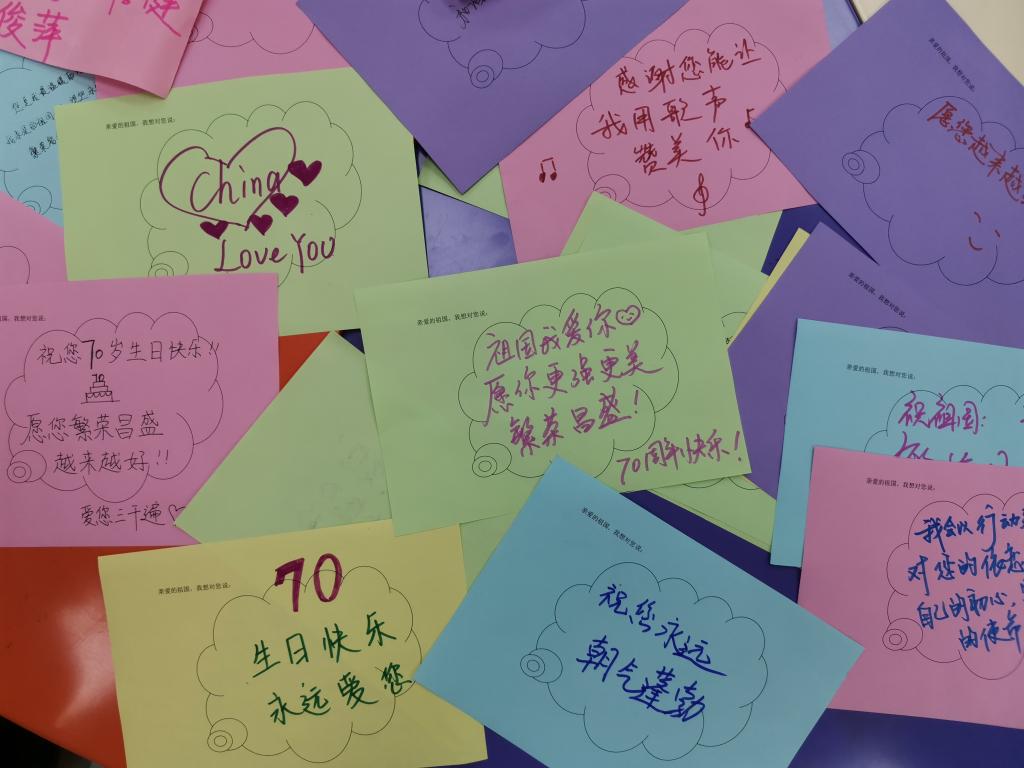 俊萍
健
亲爱的祖国，我想对您说：
China
Love You
感谢您能让
我用歌声
赞美你
亲爱的祖国，我想对您说：
愿您越来越
我想对您说：
祝您70岁生日快乐!!
70
愿您繁荣昌盛
越来越好!!
爱您三千遍
亲爱的祖国，我想对您说：
祖国我爱你
愿你更强更美
繁荣昌盛！
70周年快乐！
亲爱的祖国，我想对您说：
亲爱的祖国，我想对您说：
祝祖国：
亲爱的祖国，我想对您说：
我会以行动
对您的
自己的初心，
的使命
亲爱的祖国，我想对您说：
70
生日快乐
永远爱您
亲爱的祖国，我想对您说：
祝您永远
朝气蓬勃